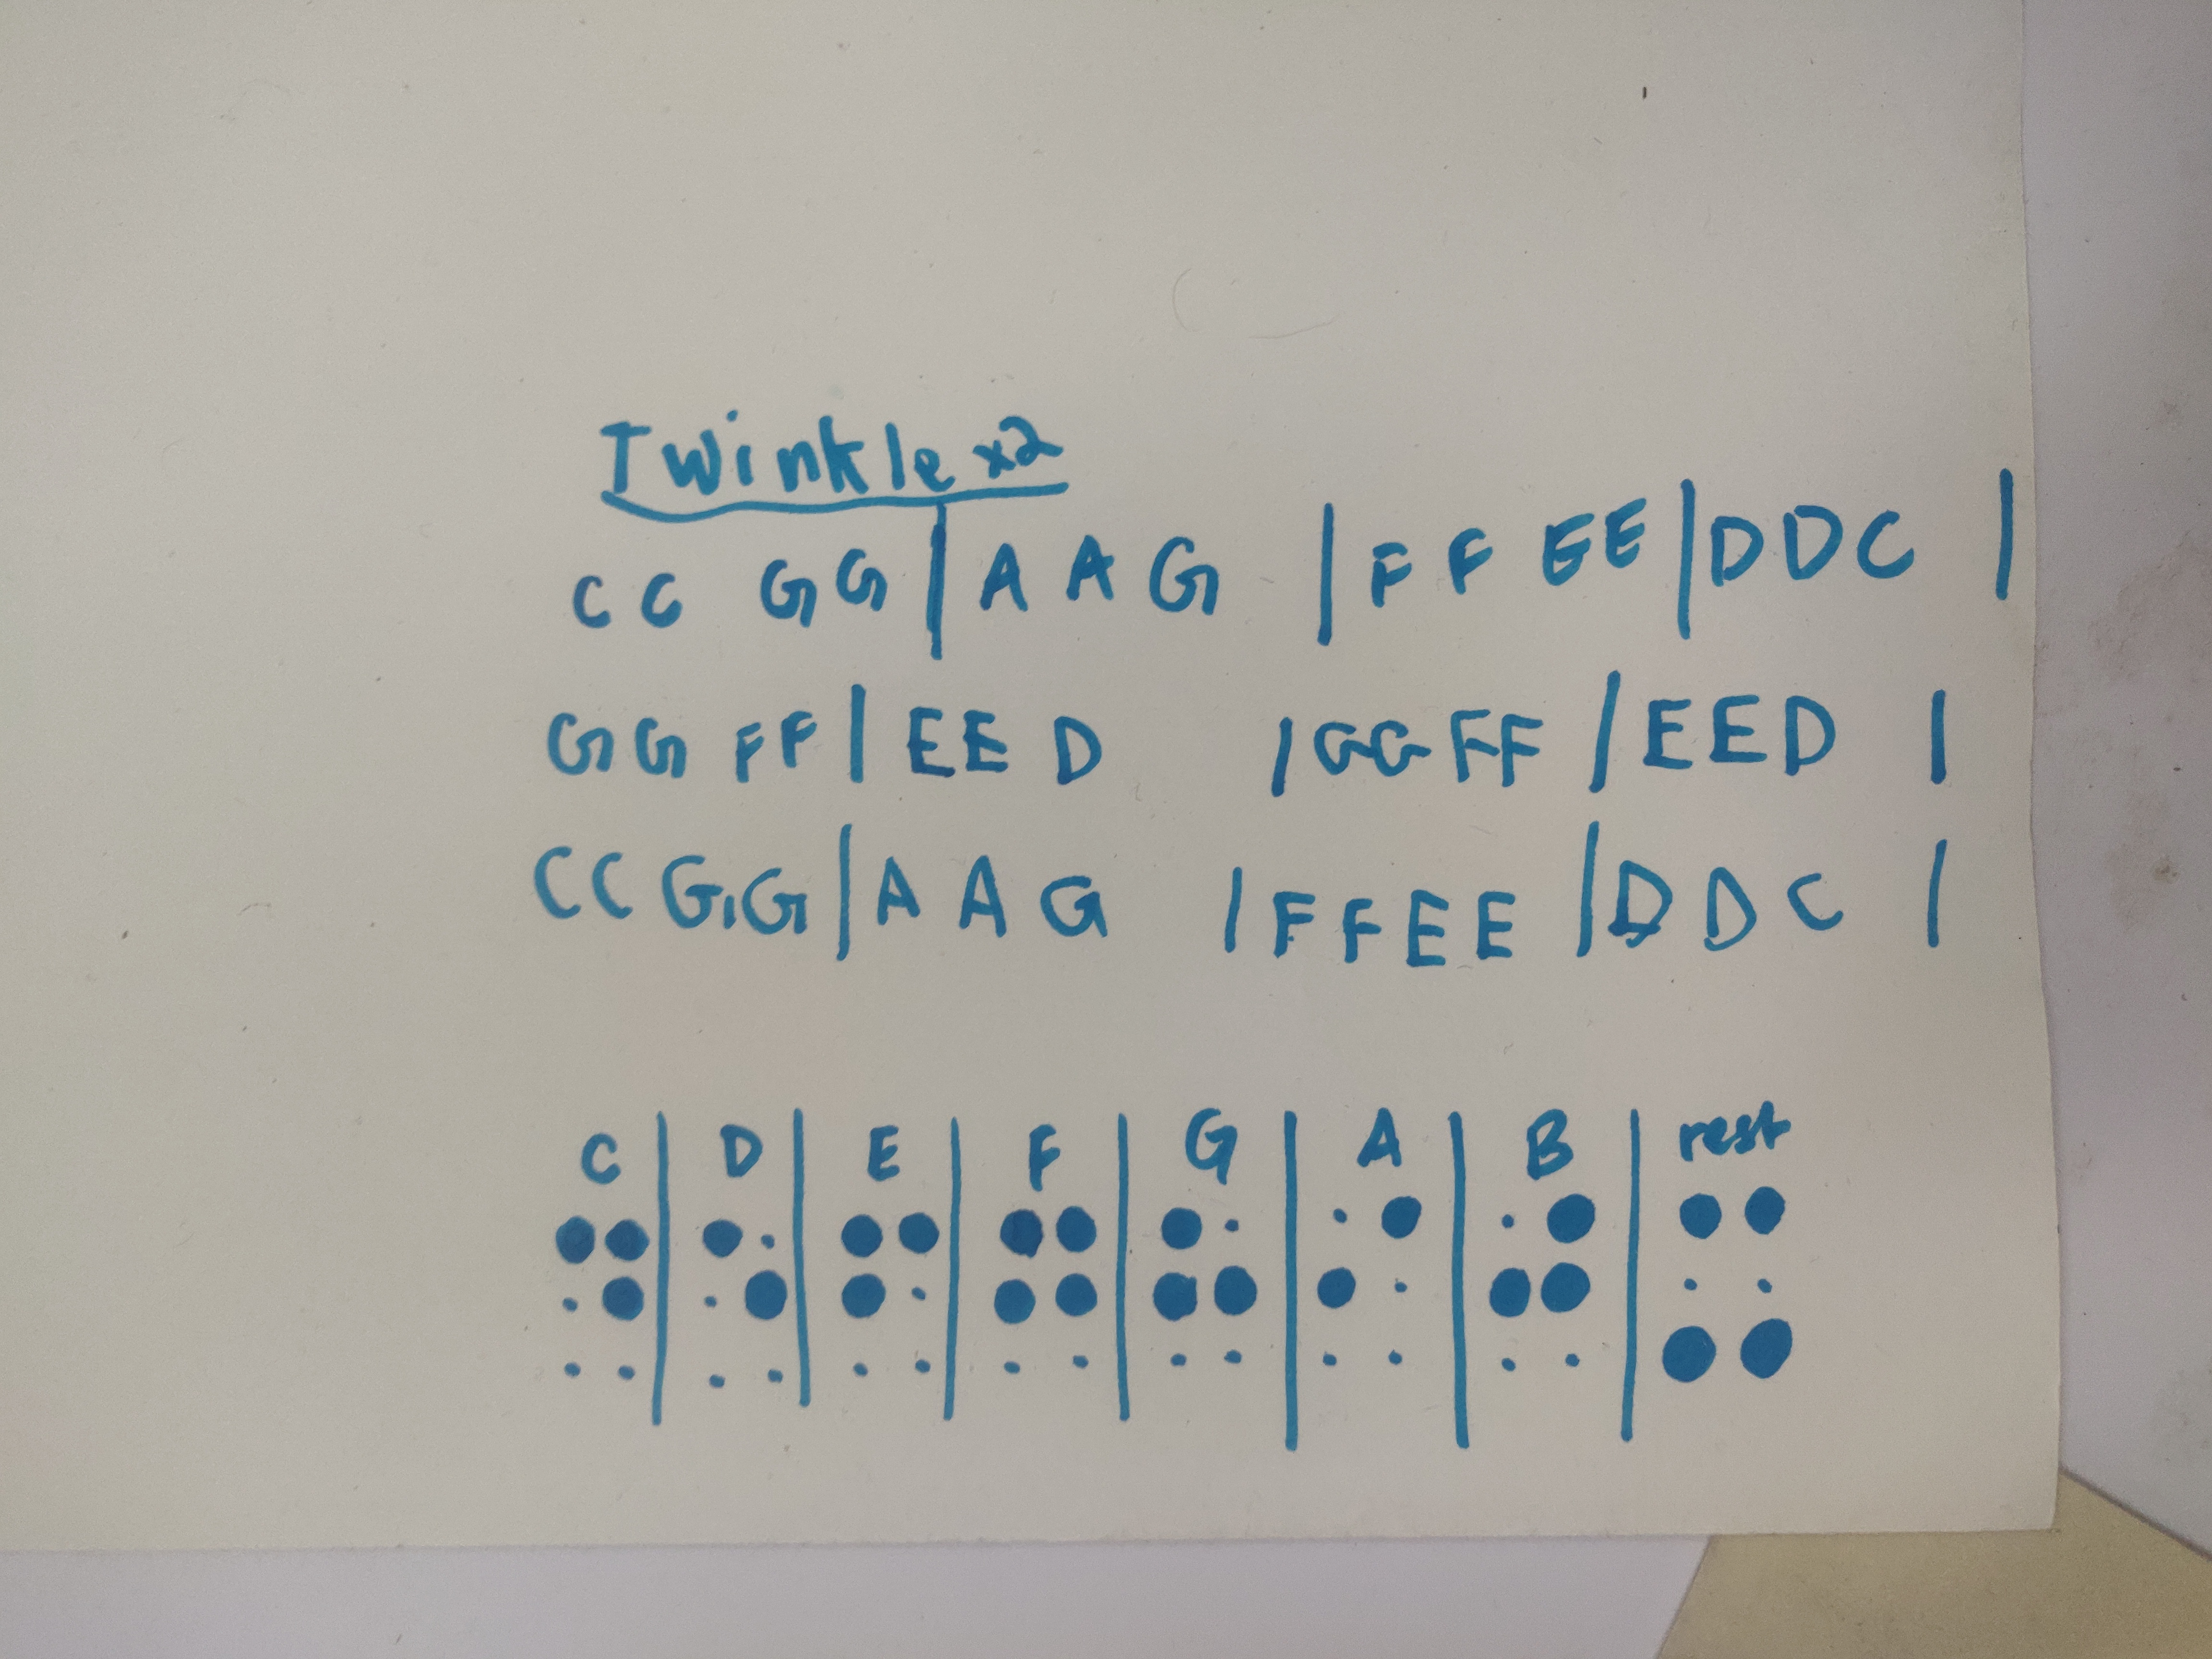 Twinkle x2
C C G G | A A G | F F E E | D D C |
G G F F | E E D | G G F F | E E D |
C C G G | A A G | F F E E | D D C |
C | D | E | F | G | A | B | rest
⠙ | ⠑ | ⠋ | ⠛ | ⠓ | ⠊ | ⠚ | ⠭